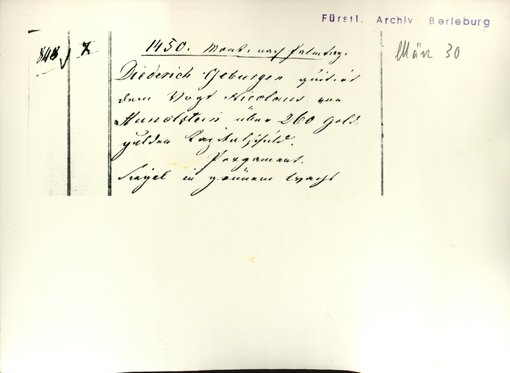 Fürstl. Archiv Berleburg
848 X 1450. Mont. nach Palmtag. März 30
Diederich Geburger quit. et
dem Vogt Nicolaus von
Hunolstein über 260 Gold
gulden Kapitalschuld.
Pergament.
Siegel in grünem Wachs